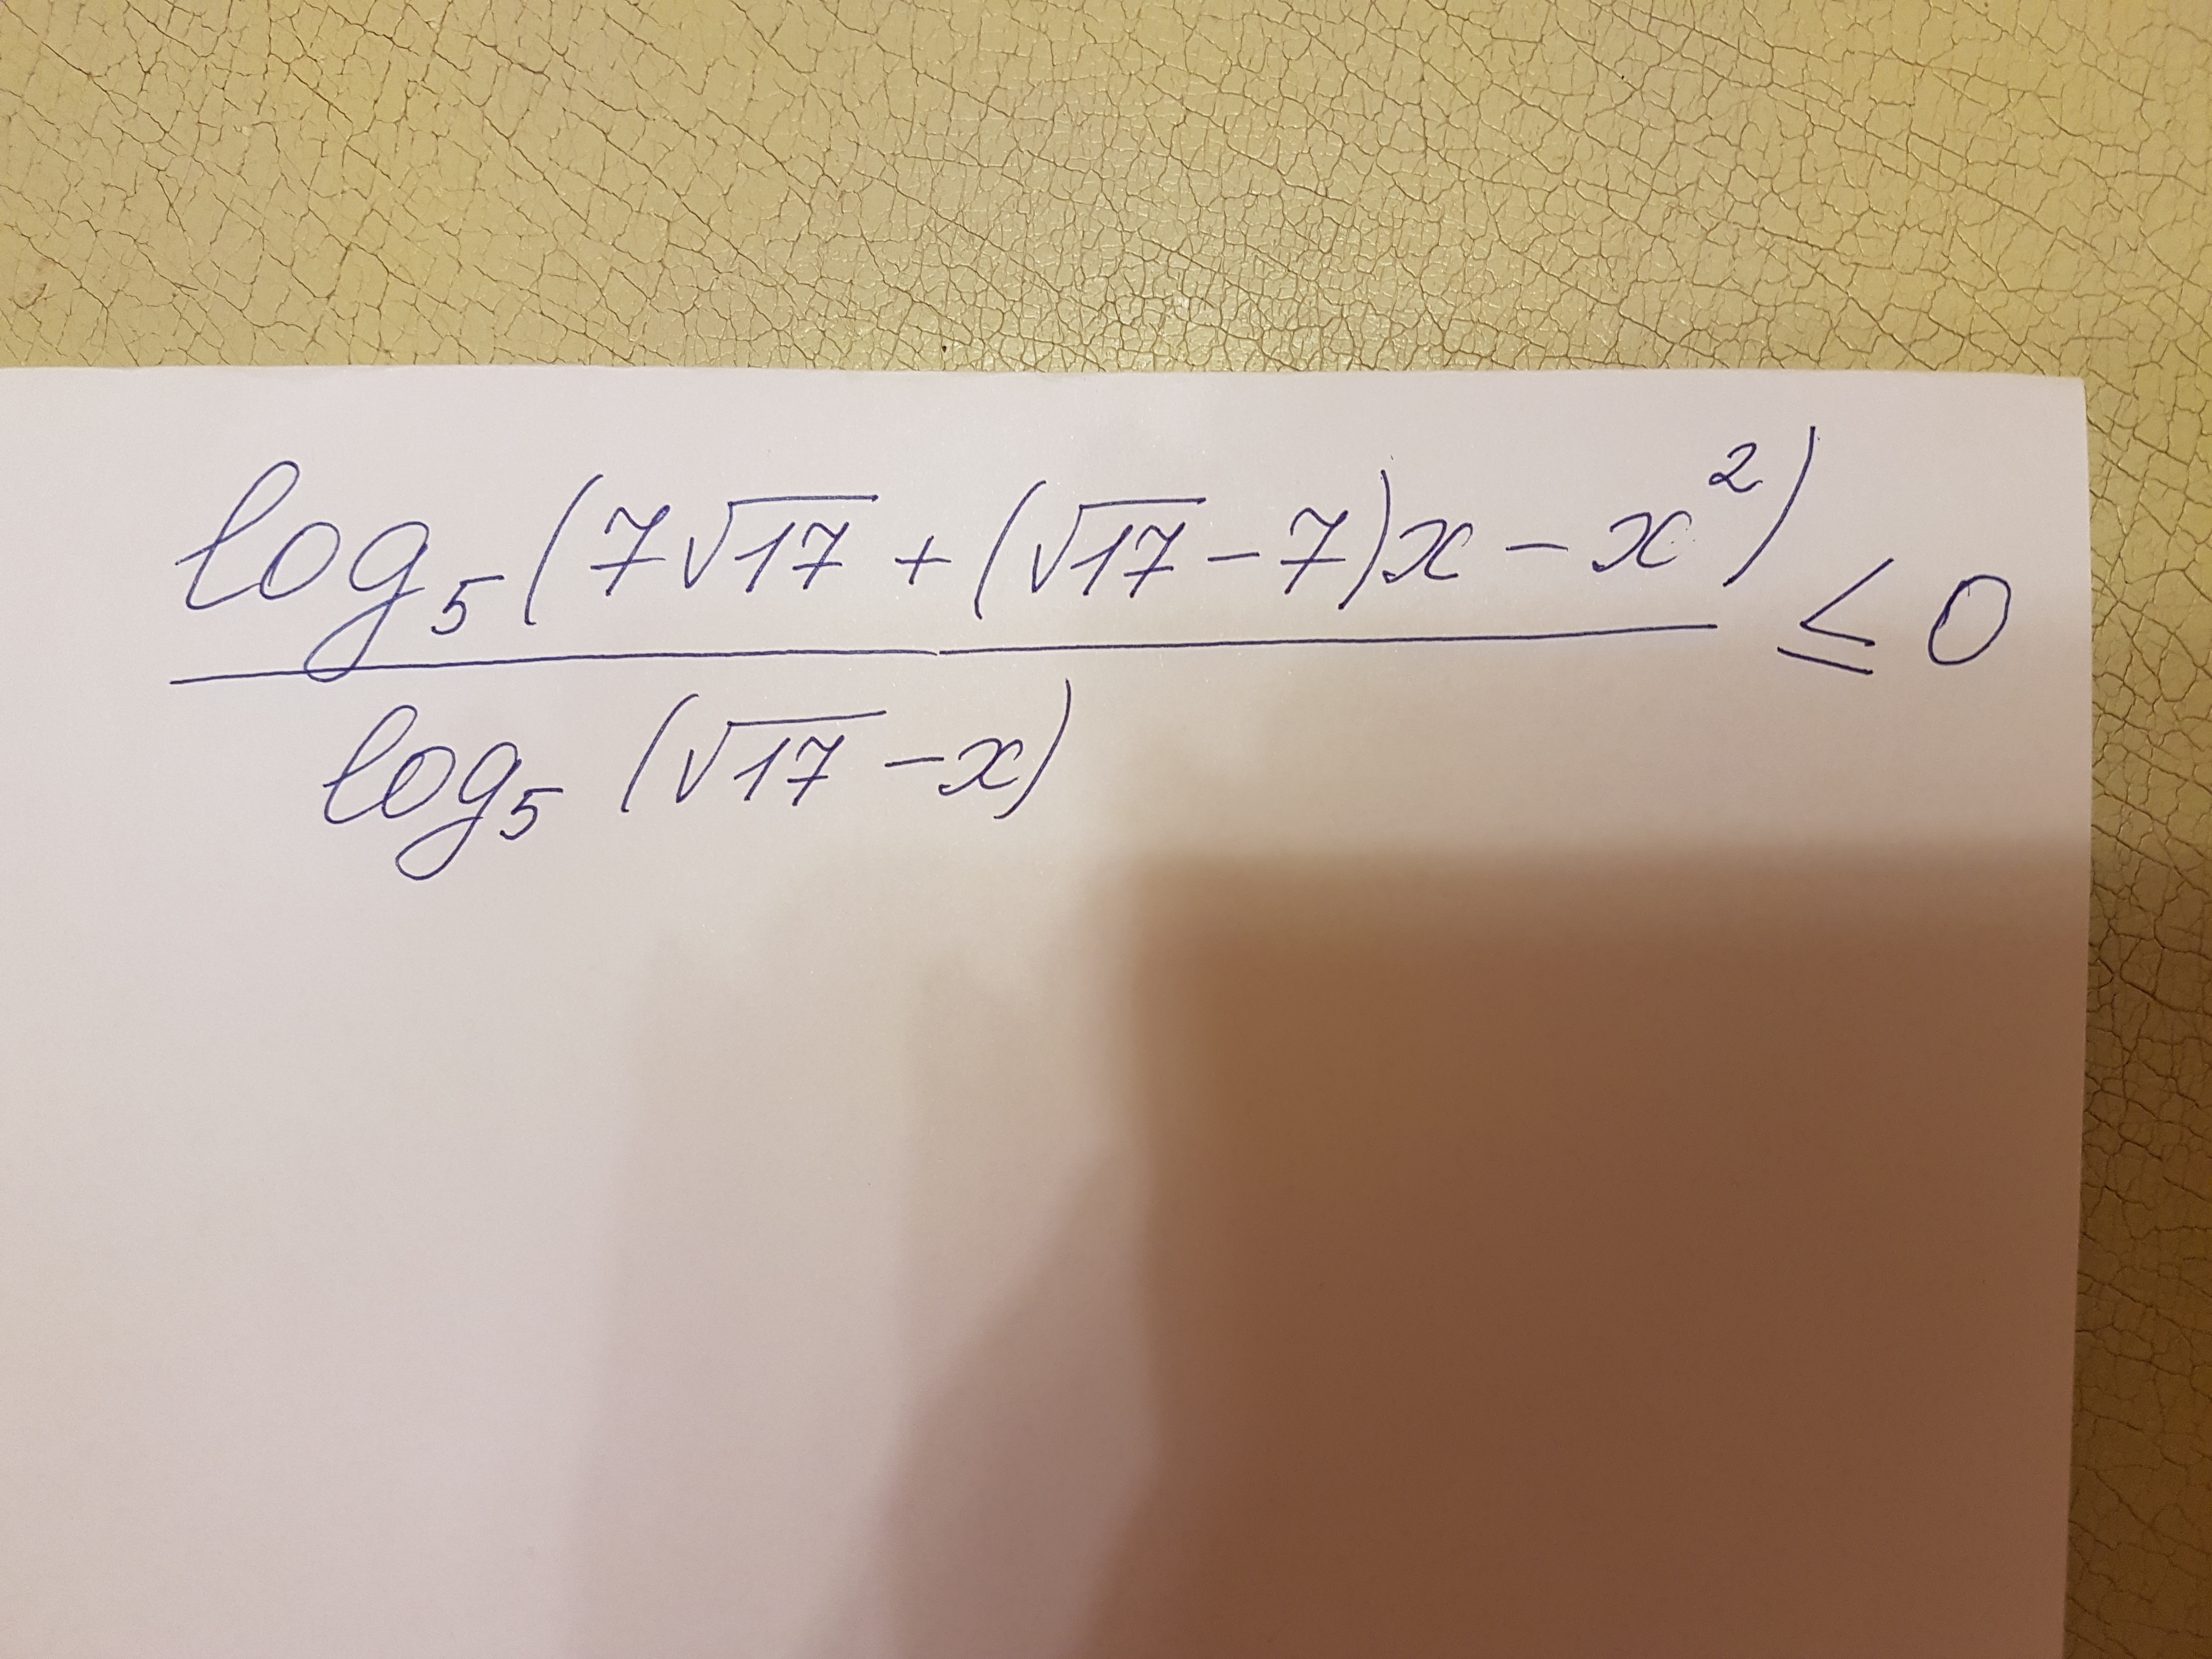 log₅(7√17 + (√17 − 7)x − x²) ≤ 0
log₅ (√17 − x)